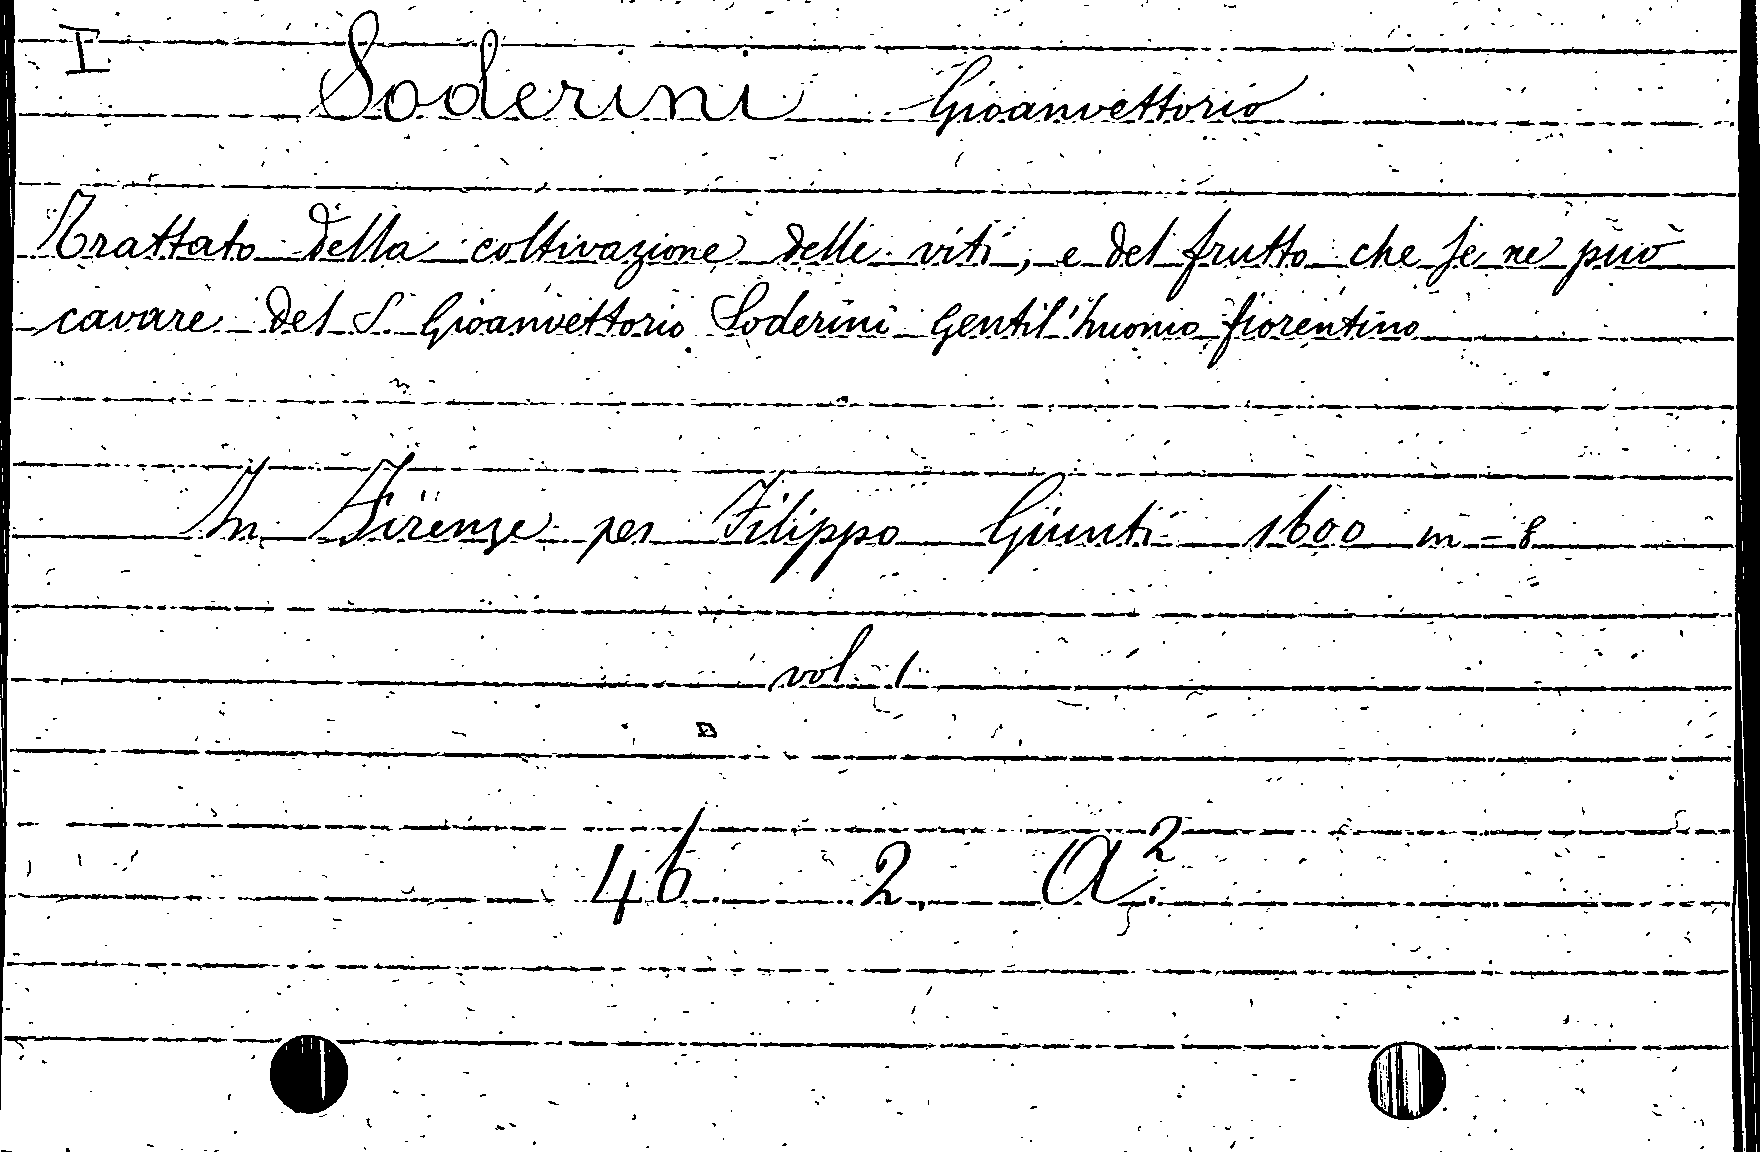 I
Soderini Gioanvettorio
Trattato della coltivazione delle viti, e del frutto che se ne può
cavare del S. Gioanvettorio Soderini Gentil'huomo fiorentino
In Firenze per Filippo Giunti 1600 in-8
vol. 1
46 2. A²